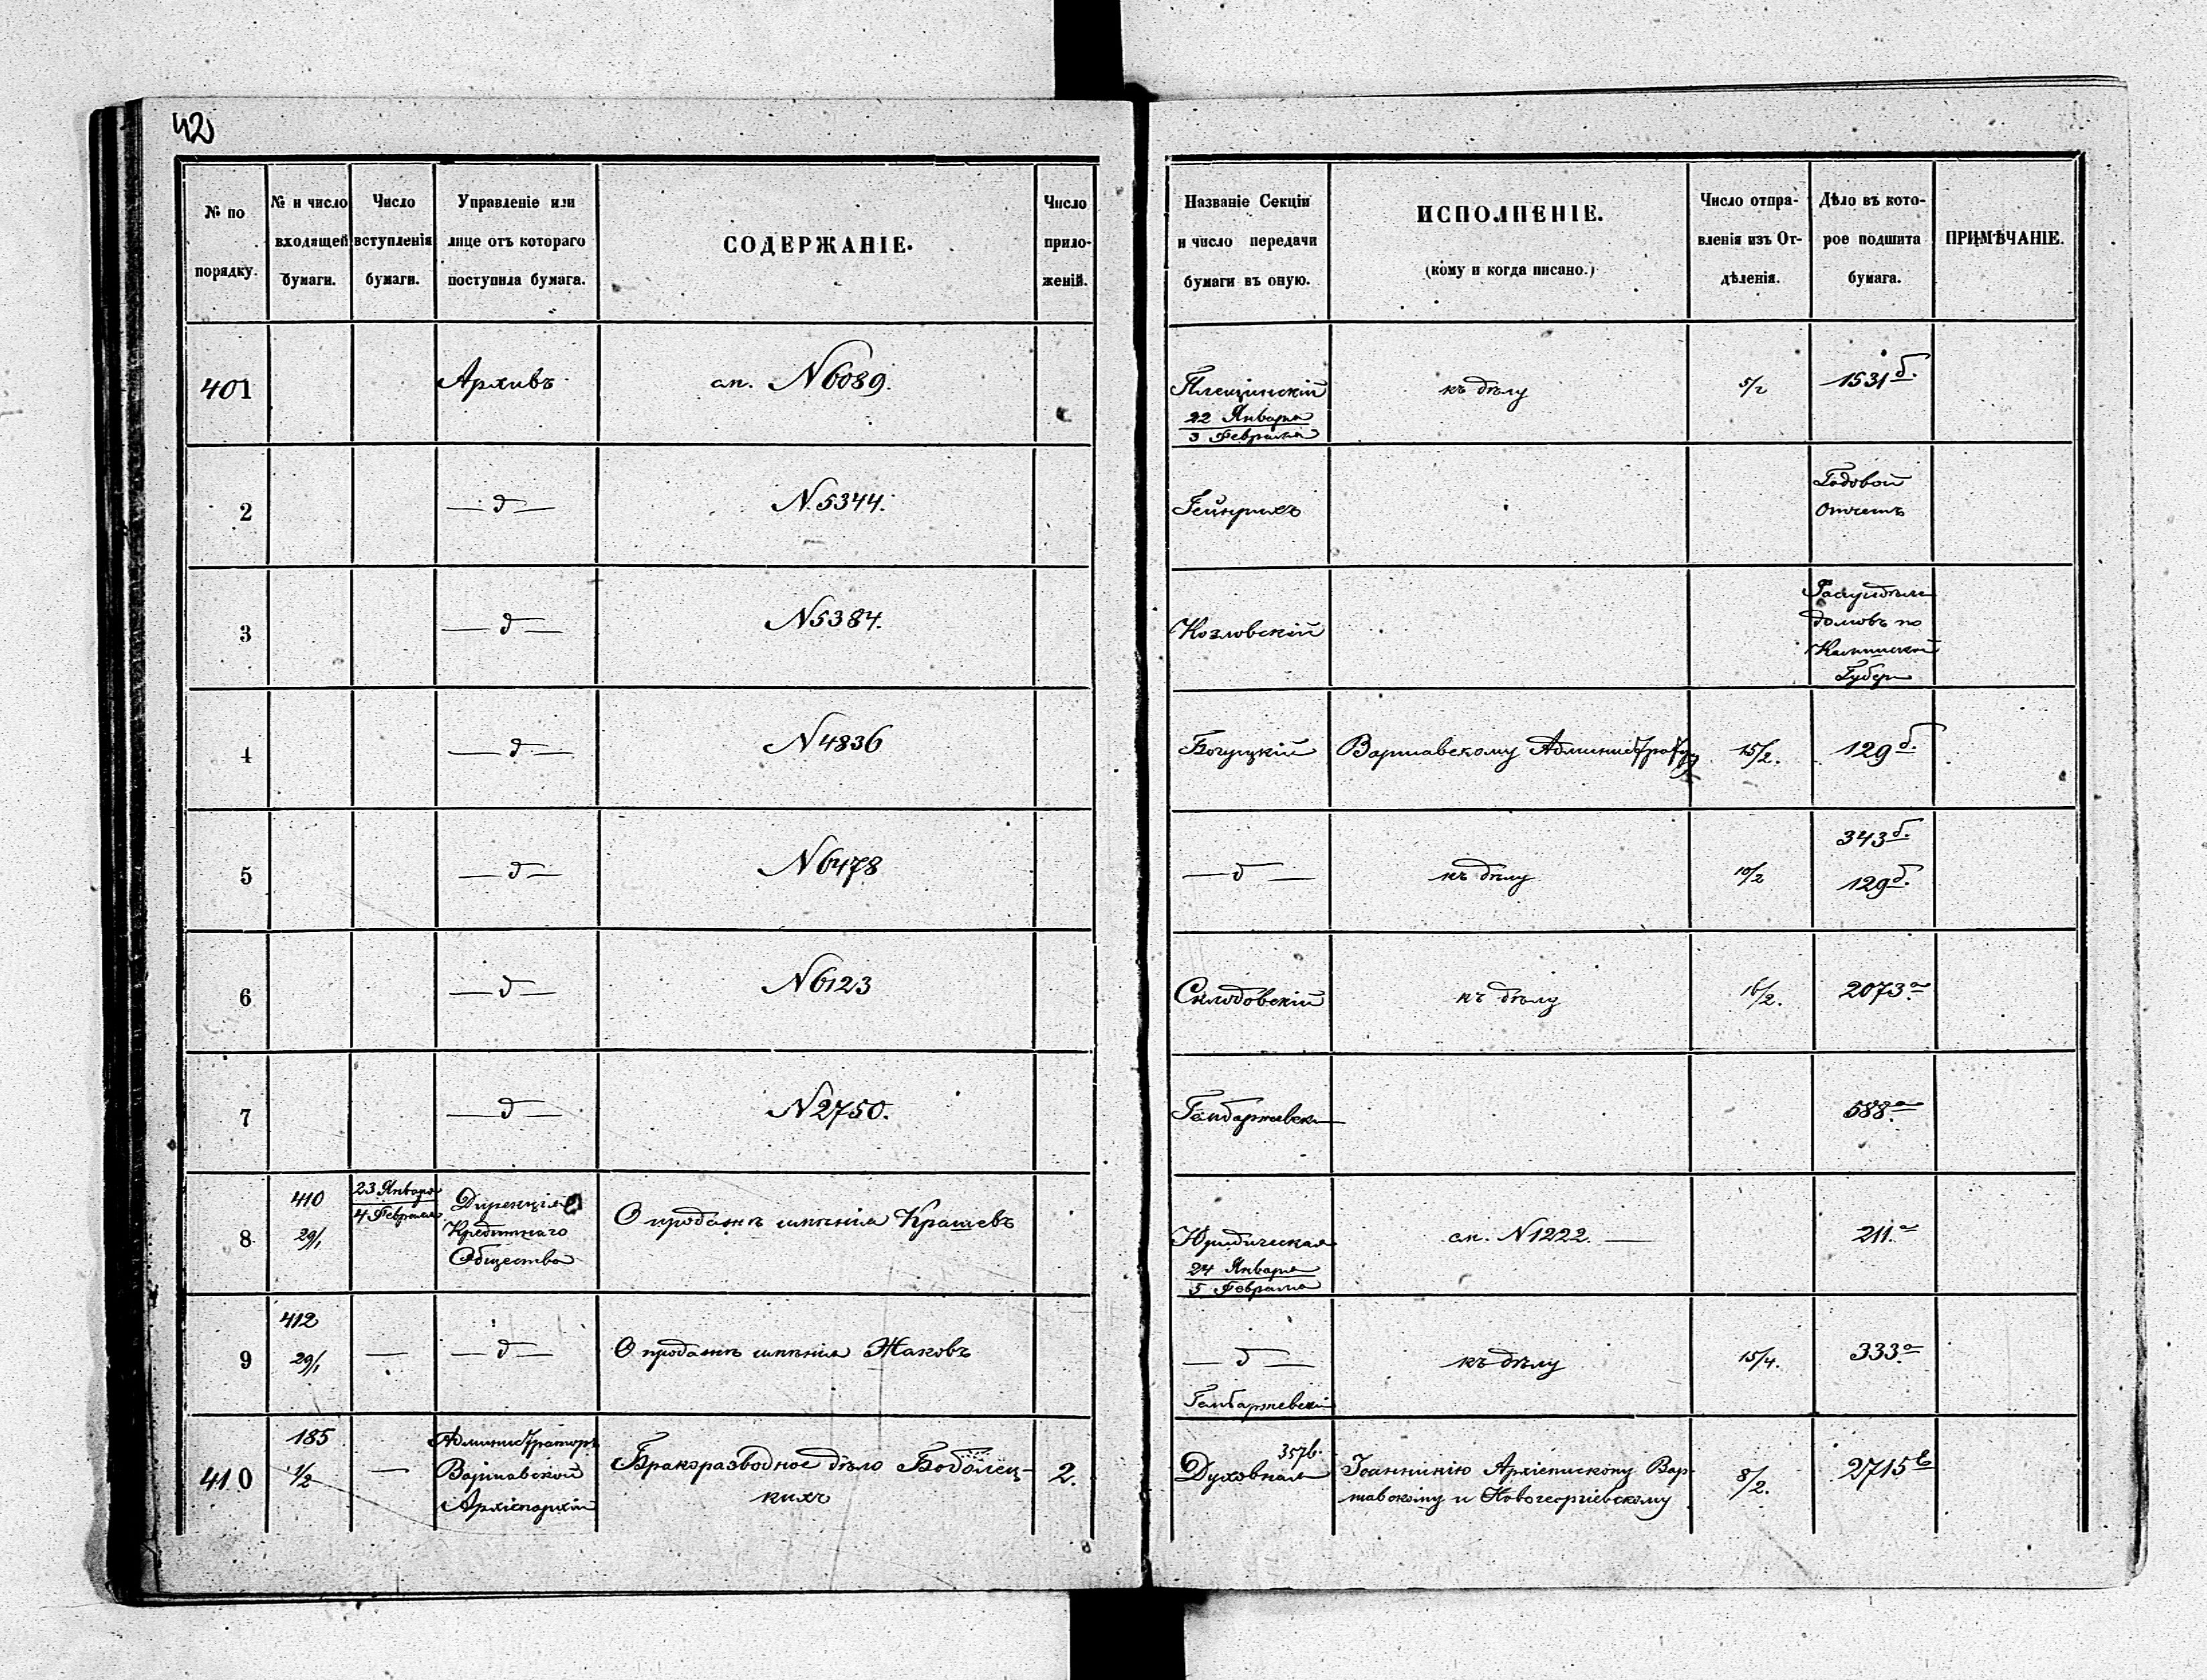 42
№ по порядку.
№ и число входящей бумаги.
Число вступленія бумаги.
Управленіе или лице отъ котораго поступила бумага.
СОДЕРЖАНІЕ.
Число приложеній.
Названіе Секціи и число передачи бумаги въ оную.
ИСПОЛНЕНІЕ.
(кому и когда писано.)
Число отправленія изъ Отдѣленія.
Дѣло въ которое подшита бумага.
ПРИМѢЧАНІЕ.
401 Архивъ см. №6089. Плещинскій къ дѣлу 5/2 1531 б.
22 Января
3 Февраля
2 — д — №5344. Гейнрихъ Годовой
Отчетъ
3 — д — №5384. Козловскій
домовъ по
Калишской
Губер
4 — д — №4836 Богуцкій Варшавскому Администратору 15/2. 129 б.
5 — д — №6478 — д — къ дѣлу 10/2 343 б.
129 б.
6 — д — №6123 Склодовскій къ дѣлу 16/2. 2073 а
7 — д — №2750. Гембаржевск 588 а
8 410 29/1 23 Января
4 Февраля
Дирекція
Кредитнаго
Общества
О продажѣ имѣнія Крашевъ
Юридическая см. №1222. — 211 а
24 Января
5 Февраля
9 412 29/1 — — д — О продажѣ имѣнія Жаковъ — д — къ дѣлу 15/4. 333 а
Гембаржевскій
410 185 1/2 — Администраторъ
Варшавской
Архіепархіи
Бракоразводное дѣло Боболец-
кихъ
2.
357 б.
Духовная
Іоанникію Архіепископу Вар-
шавскому и Новогеоргіевскому
8/2. 2715 в